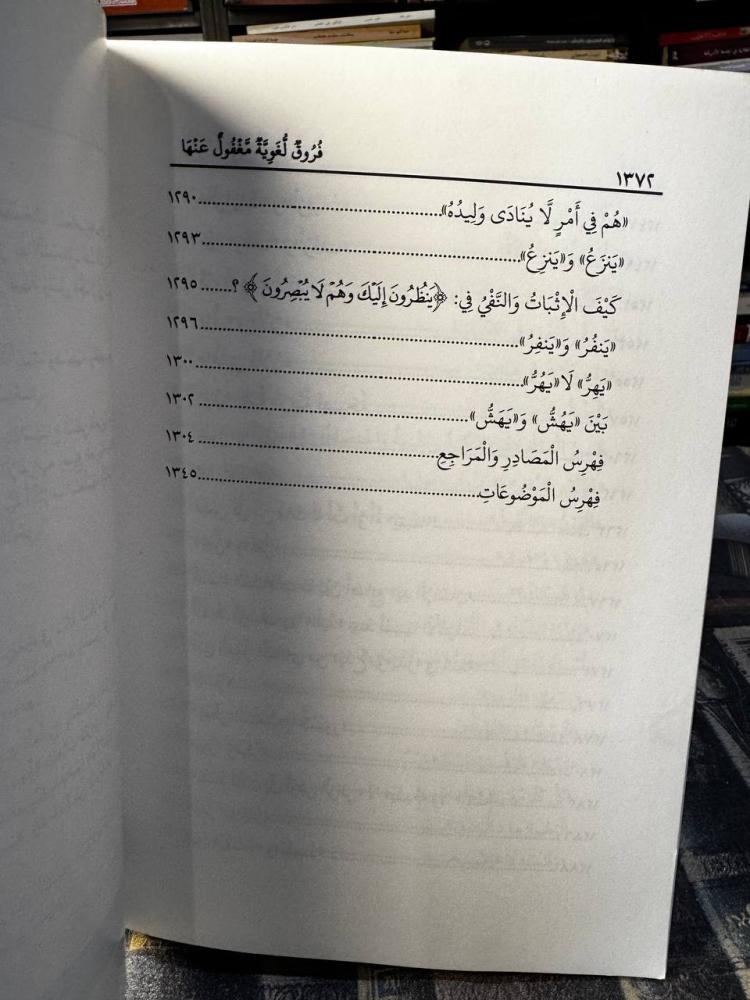 ١٣٧٢
فُرُوقٌ لُّغَوِيَّةٌ مَّغْفُولٌ عَنْهَا
«هُمْ فِي أَمْرٍ لَّا يُنَادَى وَلِيدُهُ»........................١٢٩٠
«يَنزَعُ» وَ«يَنزِعُ»........................١٢٩٣
كَيْفَ الْإِثْبَاتُ وَالنَّفْيُ فِي: ﴿يَنظُرُونَ إِلَيْكَ وَهُمْ لَا يُبْصِرُونَ﴾ ؟......١٢٩٥
«يَنفُرُ» وَ«يَنفِرُ»........................١٢٩٦
«يَهِرُّ» لَا «يَهُرُّ»........................١٣٠٠
بَيْنَ «يَهُشُّ» وَ«يَهَشُّ»........................١٣٠٢
فِهْرِسُ الْمَصَادِرِ وَالْمَرَاجِعِ........................١٣٠٤
فِهْرِسُ الْمَوْضُوعَاتِ........................١٣٤٥